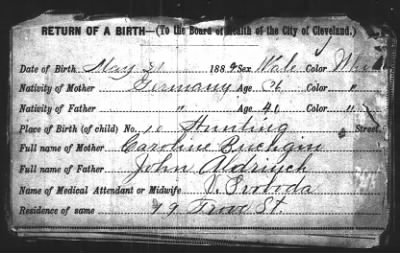 RETURN OF A BIRTH—(To the Board of Health of the City of Cleveland.)
Date of Birth May 31 1889 Sex Male Color Whi
Nativity of Mother Germany Age 36 Color "
Nativity of Father " Age 41 Color "
Place of Birth (of child) No. 10 Hunting Street.
Full name of Mother Caroline Buchgin
Full name of Father John Aldrisch
Name of Medical Attendant or Midwife Svoboda
Residence of same 79 St.